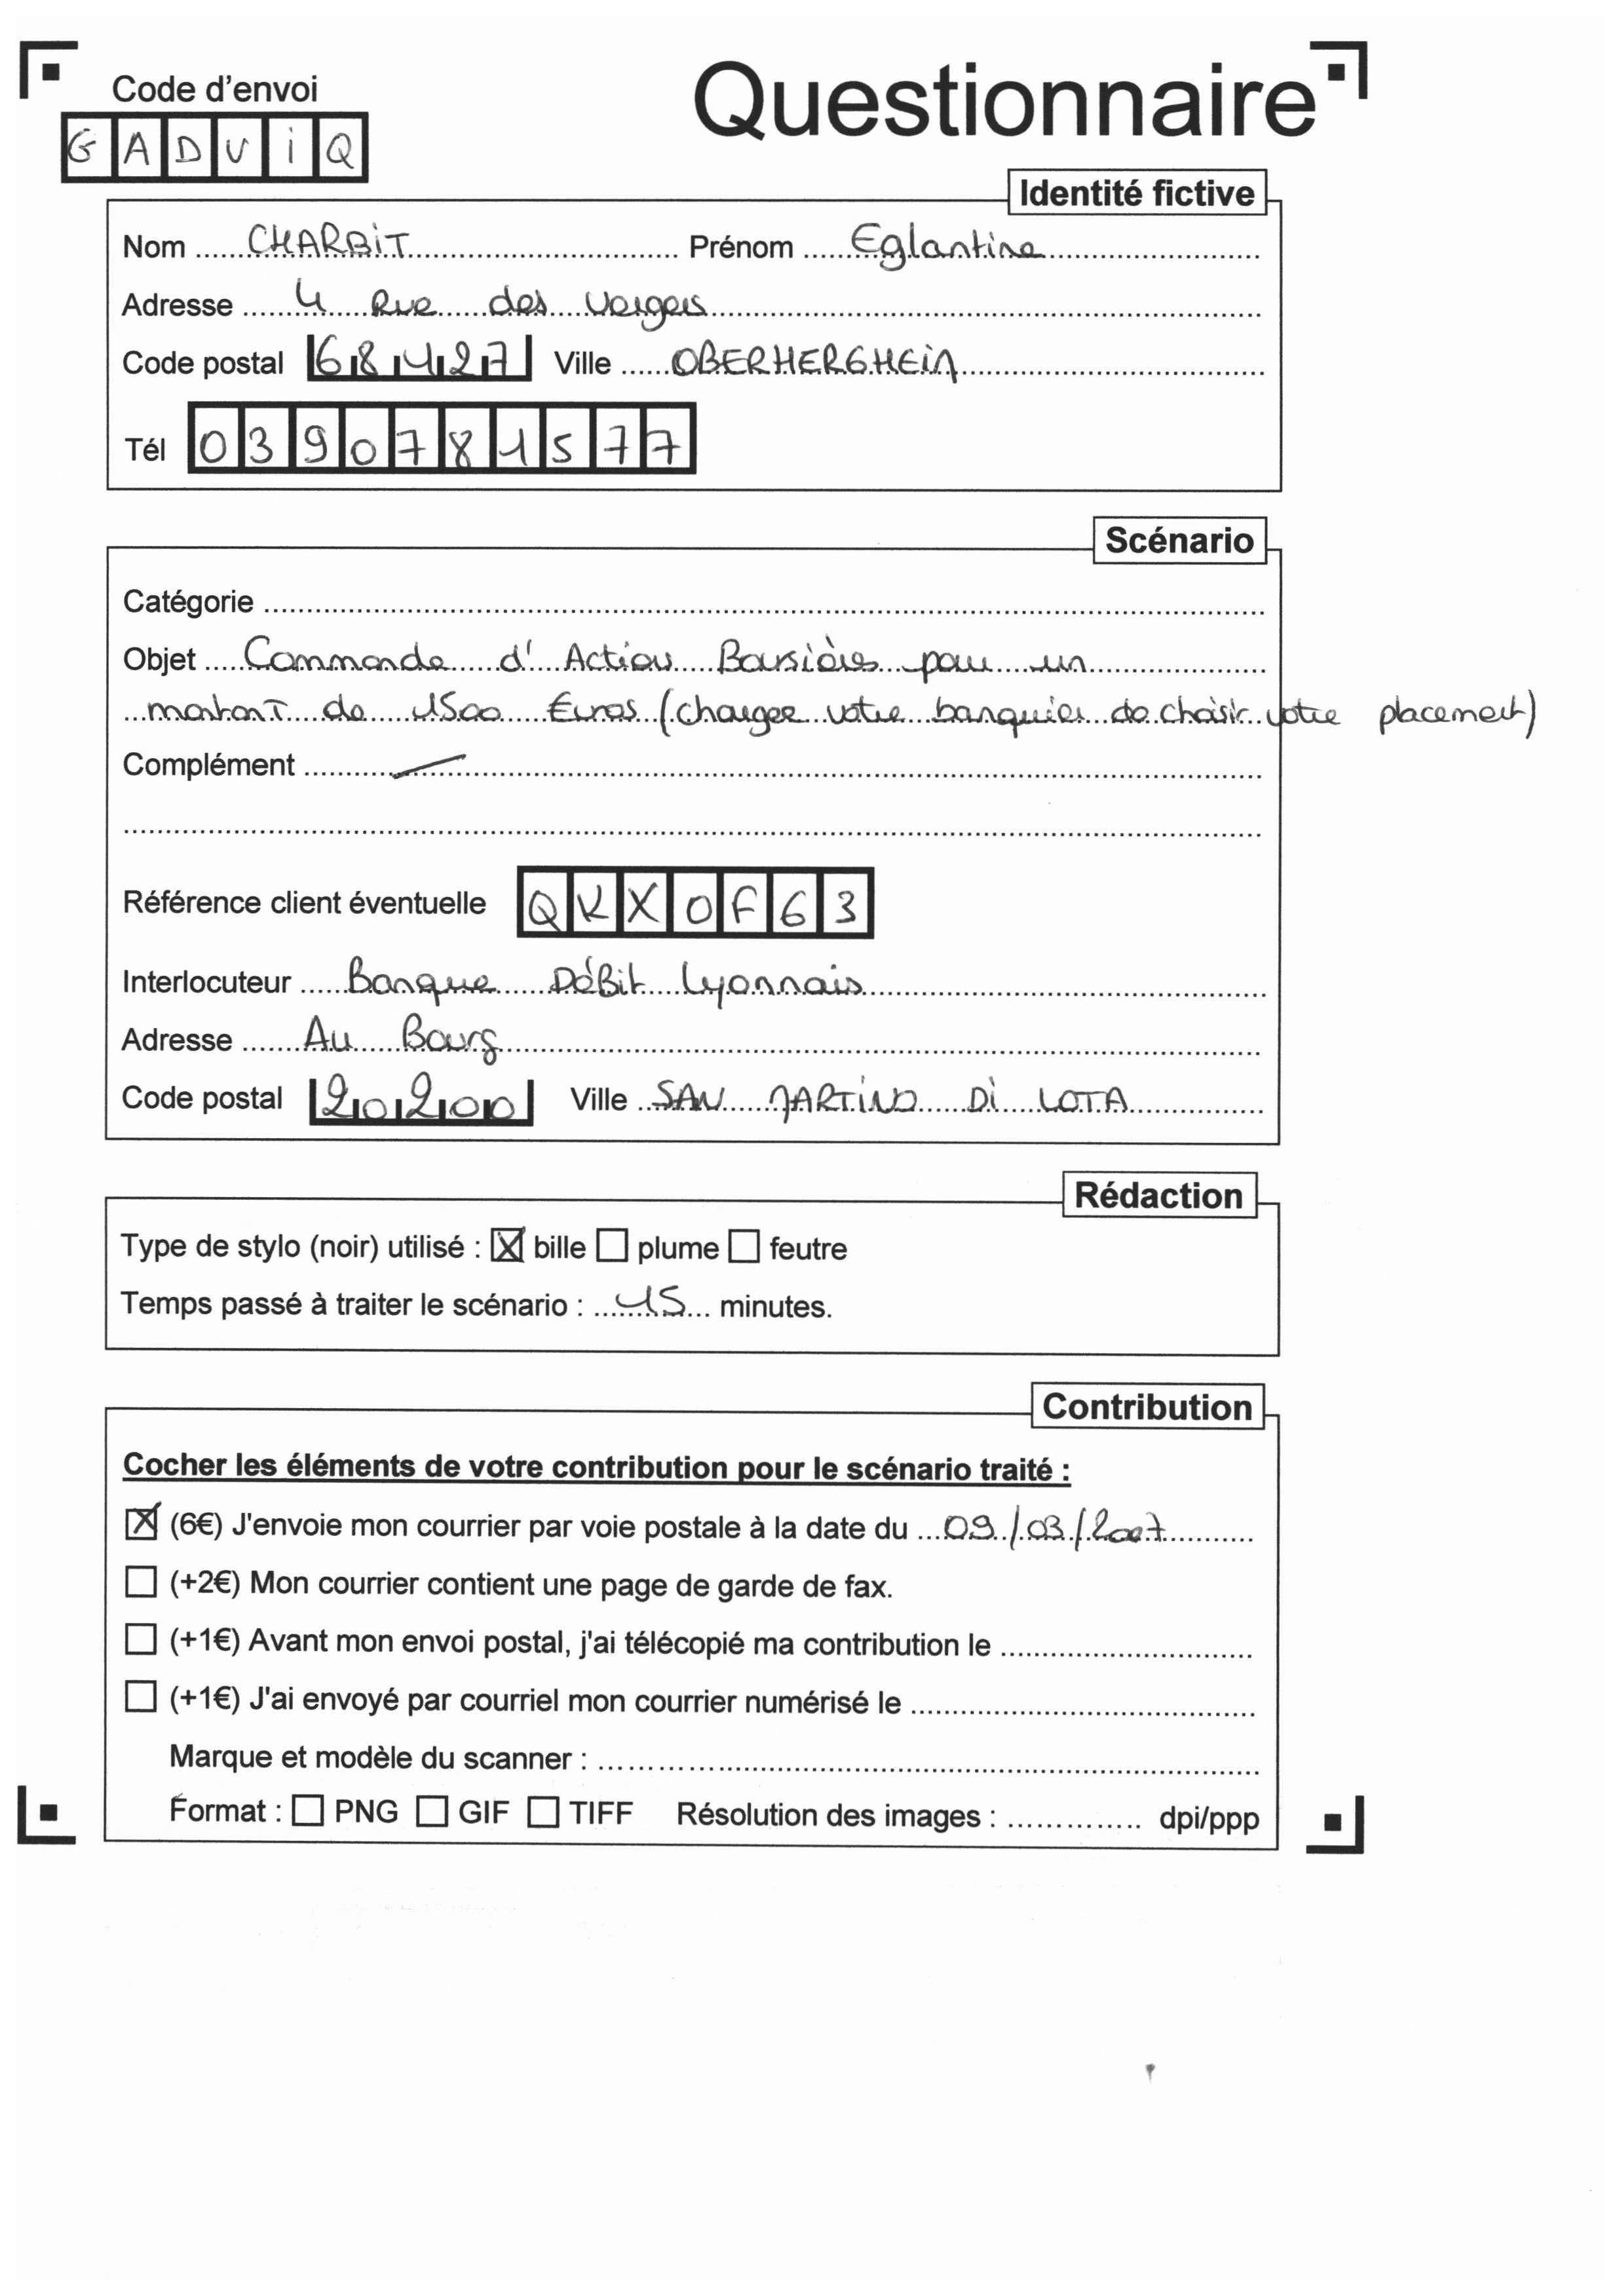 Code d'envoi
Questionnaire
GADViQ
Identité fictive
Nom CHARBiT Prénom Eglantine
Adresse 4 Rue des Vergers
Code postal 68427 Ville OBERHERGHEiM
Tél 0390781577
Scénario
Catégorie
Objet Commande d' Action Boursières pour un
montant de 1500 Euros (charger votre banquier de choisir votre placement)
Complément
Référence client éventuelle QKX0F63
Interlocuteur Banque DéBit Lyonnais
Adresse Au Bourg
Code postal 20200 Ville SAN MARTINO Di LOTA
Rédaction
Type de stylo (noir) utilisé : ☒ bille ☐ plume ☐ feutre
Temps passé à traiter le scénario : 15 minutes.
Contribution
Cocher les éléments de votre contribution pour le scénario traité :
☒ (6€) J'envoie mon courrier par voie postale à la date du 09/03/2007
☐ (+2€) Mon courrier contient une page de garde de fax.
☐ (+1€) Avant mon envoi postal, j'ai télécopié ma contribution le
☐ (+1€) J'ai envoyé par courriel mon courrier numérisé le
Marque et modèle du scanner :
Format : ☐ PNG ☐ GIF ☐ TIFF Résolution des images : dpi/ppp